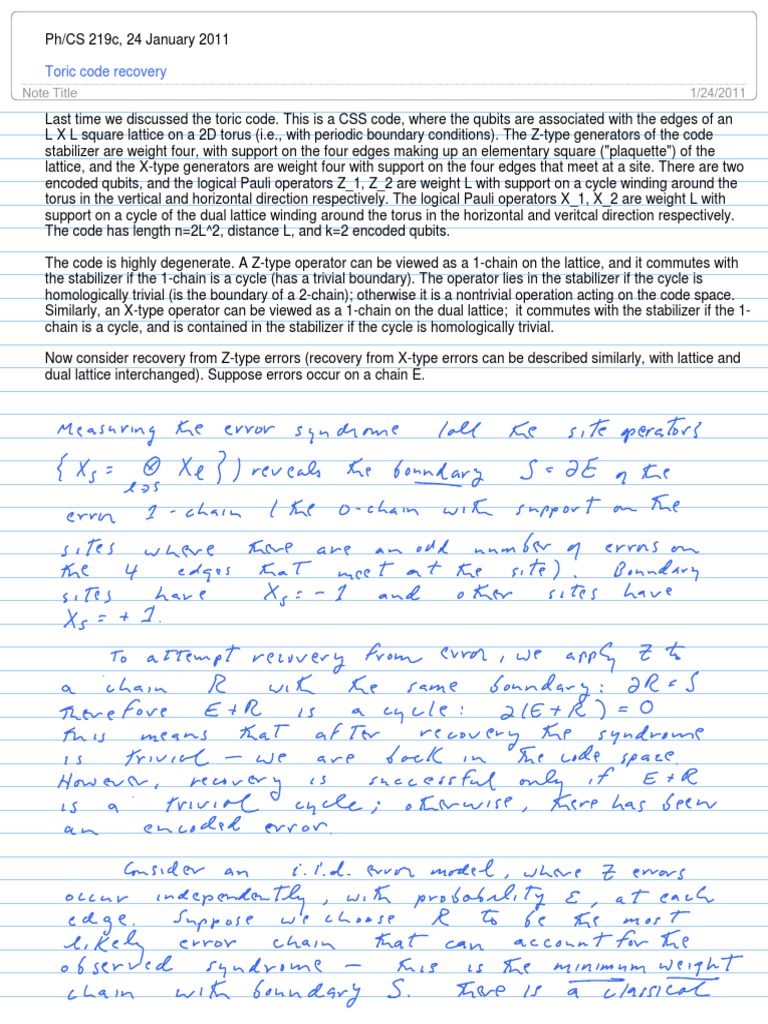 Ph/CS 219c, 24 January 2011
Toric code recovery
Note Title
1/24/2011
Last time we discussed the toric code. This is a CSS code, where the qubits are associated with the edges of an
L X L square lattice on a 2D torus (i.e., with periodic boundary conditions). The Z-type generators of the code
stabilizer are weight four, with support on the four edges making up an elementary square ("plaquette") of the
lattice, and the X-type generators are weight four with support on the four edges that meet at a site. There are two
encoded qubits, and the logical Pauli operators Z_1, Z_2 are weight L with support on a cycle winding around the
torus in the vertical and horizontal direction respectively. The logical Pauli operators X_1, X_2 are weight L with
support on a cycle of the dual lattice winding around the torus in the horizontal and veritcal direction respectively.
The code has length n=2L^2, distance L, and k=2 encoded qubits.
The code is highly degenerate. A Z-type operator can be viewed as a 1-chain on the lattice, and it commutes with
the stabilizer if the 1-chain is a cycle (has a trivial boundary). The operator lies in the stabilizer if the cycle is
homologically trivial (is the boundary of a 2-chain); otherwise it is a nontrivial operation acting on the code space.
Similarly, an X-type operator can be viewed as a 1-chain on the dual lattice;  it commutes with the stabilizer if the 1-
chain is a cycle, and is contained in the stabilizer if the cycle is homologically trivial.
Now consider recovery from Z-type errors (recovery from X-type errors can be described similarly, with lattice and
dual lattice interchanged). Suppose errors occur on a chain E.
Measuring the error syndrome (all the site operators
{ X_s = ⊗_{ℓ∋s} X_ℓ }) reveals the boundary S = ∂E of the
error 1-chain (the 0-chain with support on the
sites where there are an odd number of errors on
the 4 edges that meet at the site). Boundary
sites have X_s = -1 and other sites have
X_s = +1.
To attempt recovery from error, we apply Z to
a chain R with the same boundary: ∂R = S
therefore E+R is a cycle: ∂(E+R) = 0
this means that after recovery the syndrome
is trivial — we are back in the code space.
However, recovery is successful only if E+R
is a trivial cycle; otherwise, there has been
an encoded error.
Consider an i.i.d. error model, where Z errors
occur independently, with probability ε, at each
edge. Suppose we choose R to be the most
likely error chain that can account for the
observed syndrome — this is the minimum weight
chain with boundary S. There is a classical